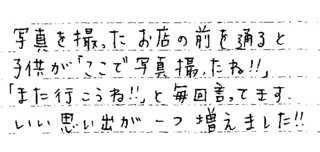 写真を撮ったお店の前を通ると
子供が「ここで写真撮ったね!!」
「また行こうね!!」と毎回言ってます.
いい思い出が一つ増えました!!